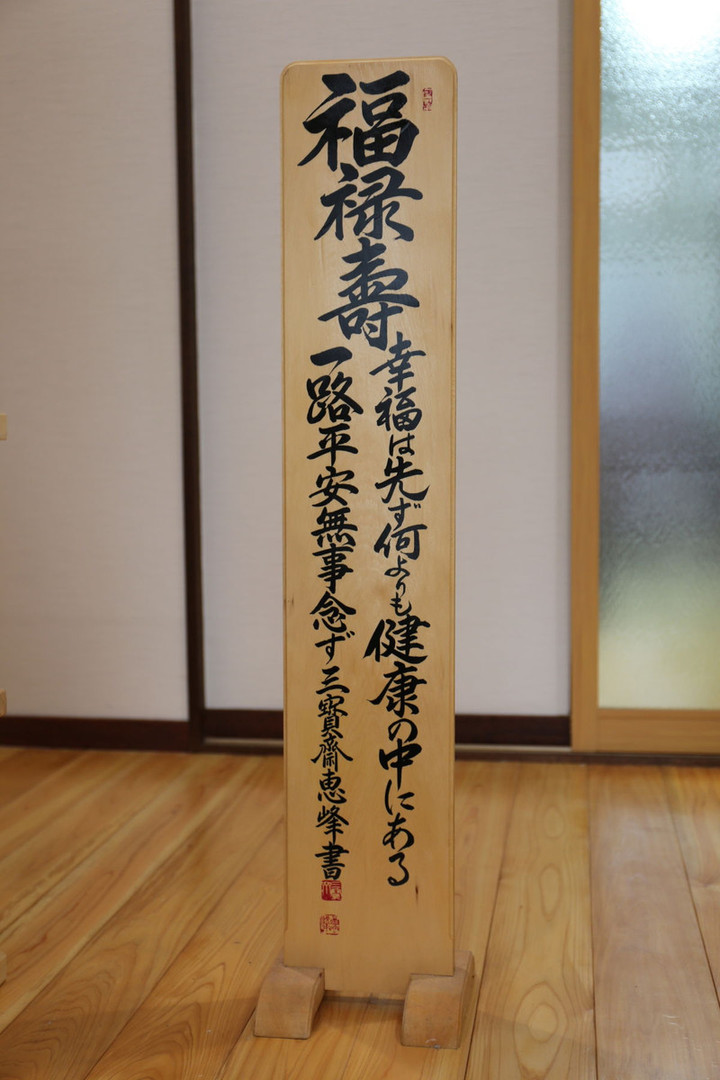 福禄壽
幸福は先ず何よりも健康の中にある
一路平安無事念ず 三寳齋恵峰書